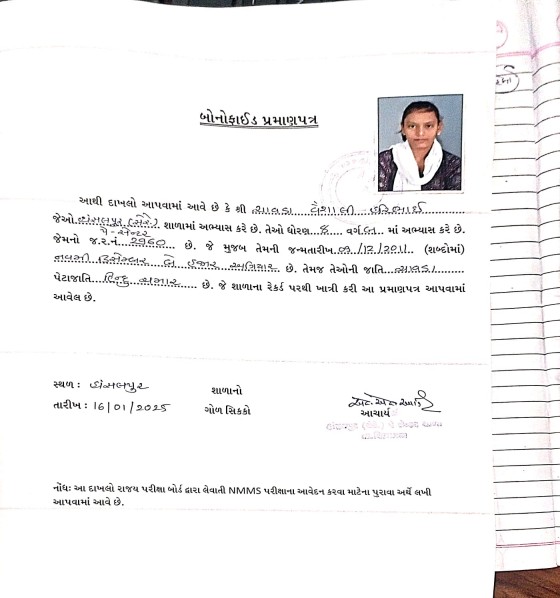 બોનોફાઈડ પ્રમાણપત્ર
આથી દાખલો આપવામાં આવે છે કે શ્રી ચાવડા વૈશાલી હરિભાઈ
જેઓ હાંસલપુર (સેરે.) શાળામાં અભ્યાસ કરે છે. તેઓ ધોરણ 8 વર્ગ માં અભ્યાસ કરે છે.
પે-સેન્ટર
જેમનો જ.ર.નં. 2960 છે. જે મુજબ તેમની જન્મતારીખ 09/12/2011 (શબ્દોમાં)
નવમી ડિસેમ્બર બે હજાર અગિયાર છે. તેમજ તેઓની જાતિ ચાવડા
પેટાજાતિ હિન્દુ ચમાર છે. જે શાળાના રેકર્ડ પરથી ખાત્રી કરી આ પ્રમાણપત્ર આપવામાં
આવેલ છે.
સ્થળ : હાંસલપુર શાળાનો
તારીખ : 16/01/2025 ગોળ સિક્કો
આચાર્ય
નોંધઃ આ દાખલો રાજય પરીક્ષા બોર્ડ દ્વારા લેવાતી NMMS પરીક્ષાના આવેદન કરવા માટેના પુરાવા અર્થે લખી
આપવામાં આવે છે.